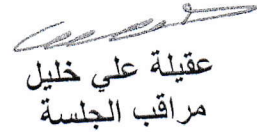 عقيلة علي خليل
مراقب الجلسة